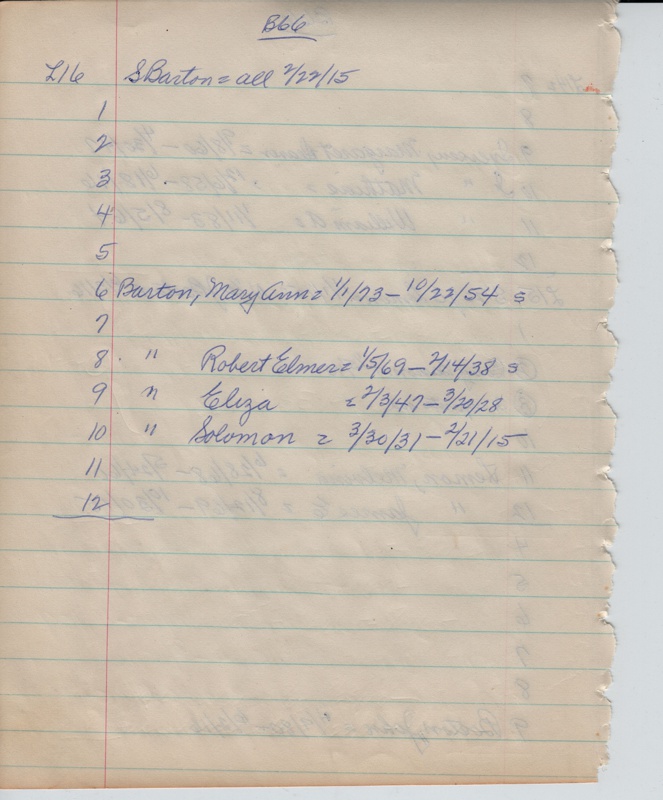 B66
L16 S Barton = all 2/22/15
1
2
3
4
5
6 Barton, Mary Ann = 1/1/73 - 10/22/54 s
7
8 " Robert Elmer = 1/5/69 - 2/14/38 s
9 " Eliza = 2/3/47 - 3/20/28
10 " Solomon = 3/30/31 - 2/21/15
11
12